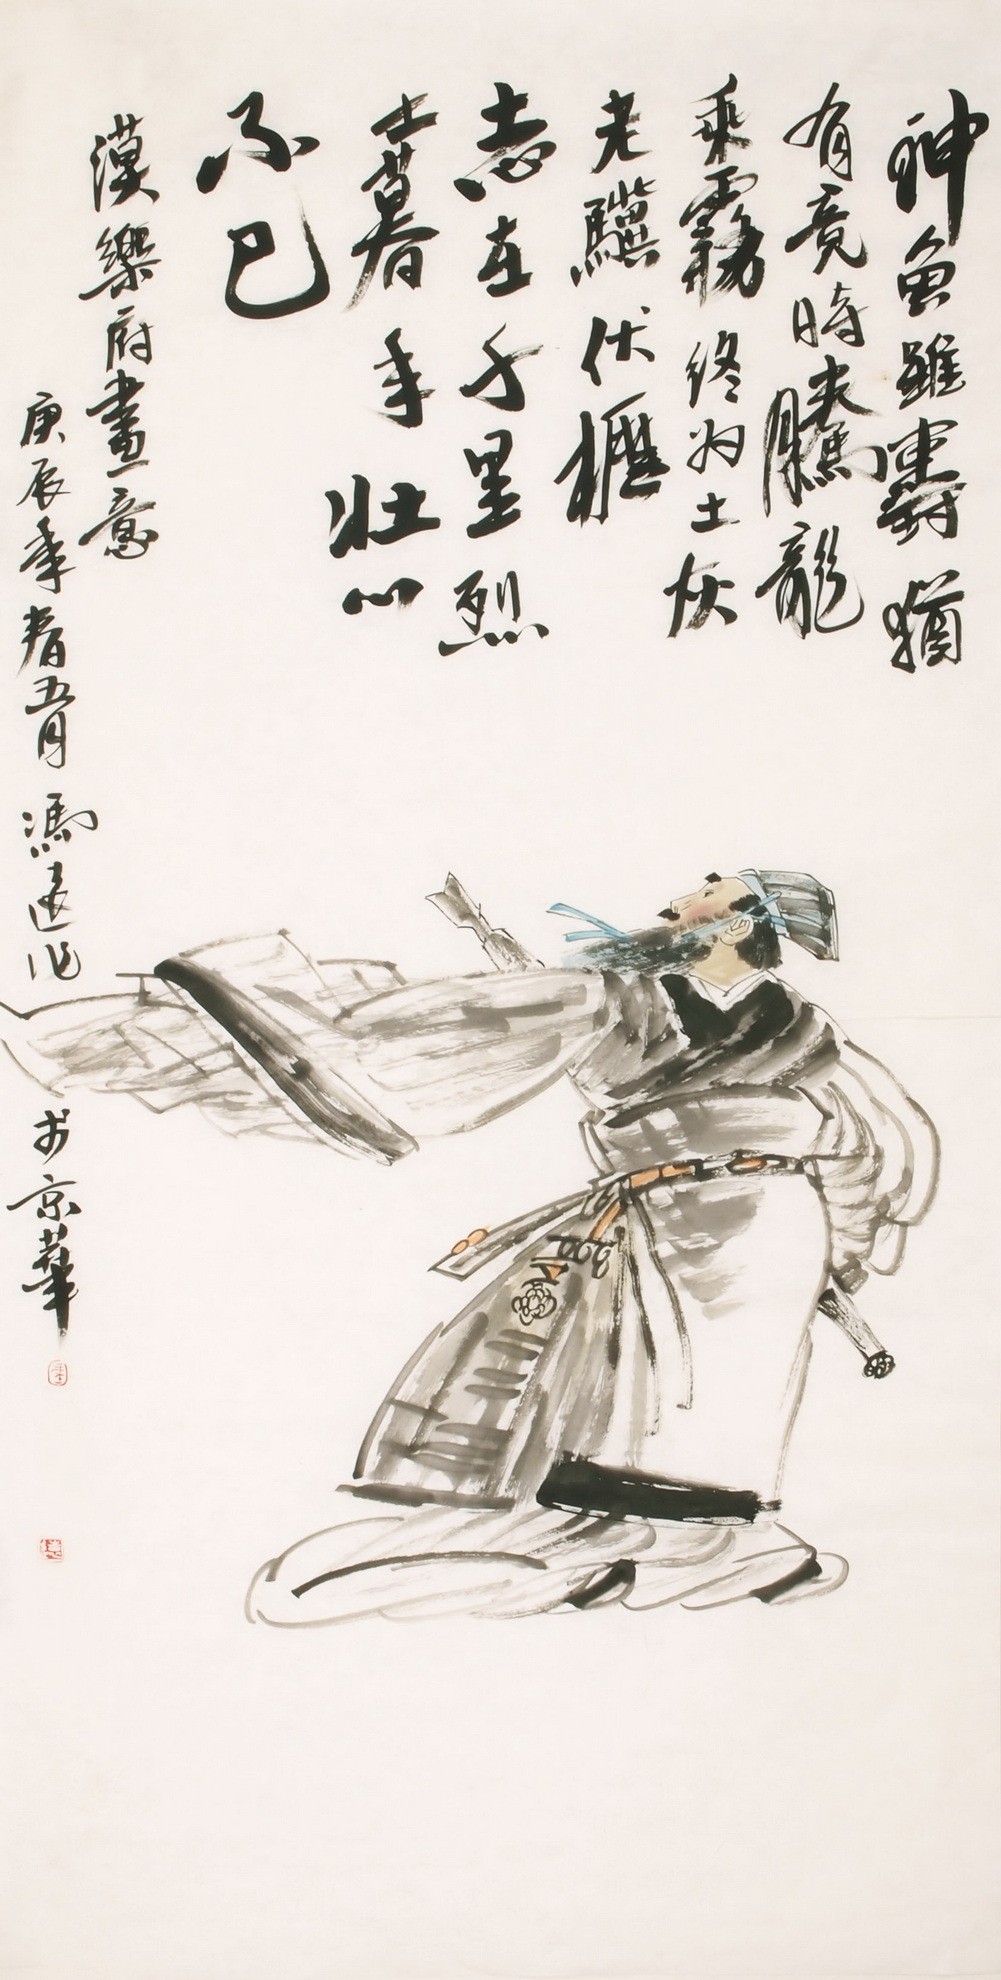 神龟雖壽猶
有竟時騰龍
乘霧終为土灰
老驥伏櫪
志在千里烈
士暮年壮心
不已
漢樂府畫意
庚辰年春五月 馮遠作 於京華